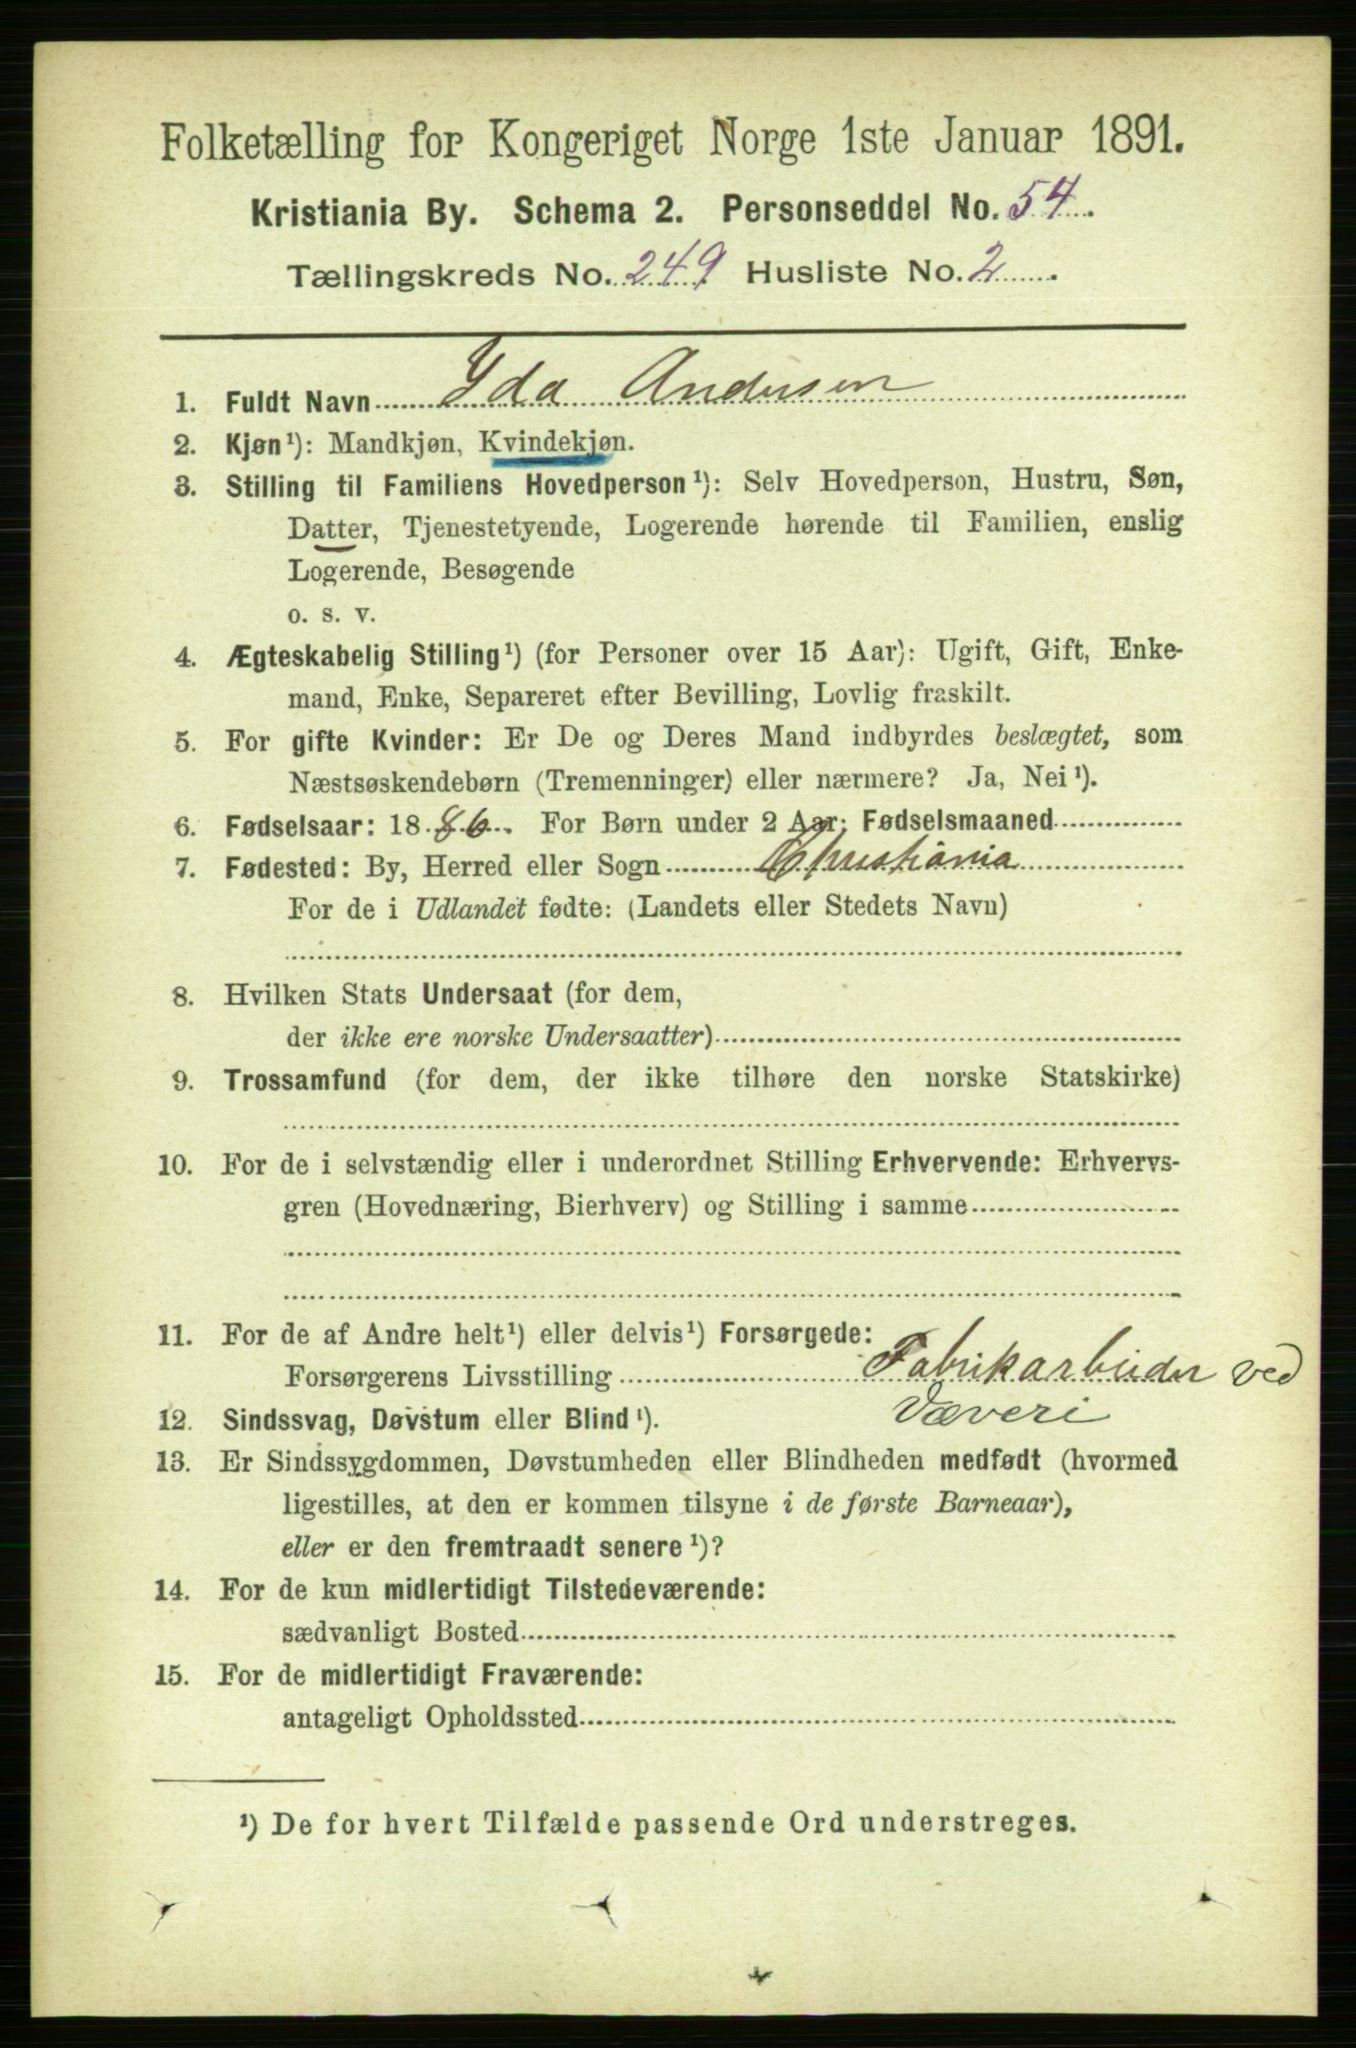 Folketælling for Kongeriget Norge 1ste Januar 1891.
Kristiania By. Schema 2. Personseddel No. 54.
Tællingskreds No. 249 Husliste No. 2.
1. Fuldt Navn Yda Andersen
2. Kjøn¹): Mandkjøn, Kvindekjøn.
3. Stilling til Familiens Hovedperson¹): Selv Hovedperson, Hustru, Søn,
Datter, Tjenestetyende, Logerende hørende til Familien, enslig
Logerende, Besøgende
o. s. v.
4. Ægteskabelig Stilling¹) (for Personer over 15 Aar): Ugift, Gift, Enke-
mand, Enke, Separeret efter Bevilling, Lovlig fraskilt.
5. For gifte Kvinder: Er De og Deres Mand indbyrdes beslægtet, som
Næstsøskendebørn (Tremenninger) eller nærmere? Ja, Nei¹).
6. Fødselsaar: 1886. For Børn under 2 Aar: Fødselsmaaned
7. Fødested: By, Herred eller Sogn Christiania
For de i Udlandet fødte: (Landets eller Stedets Navn)
8. Hvilken Stats Undersaat (for dem,
der ikke ere norske Undersaatter)
9. Trossamfund (for dem, der ikke tilhøre den norske Statskirke)
10. For de i selvstændig eller i underordnet Stilling Erhvervende: Erhvervs-
gren (Hovednæring, Bierhverv) og Stilling i samme
11. For de af Andre helt¹) eller delvis¹) Forsørgede:
Forsørgerens Livsstilling Fabrikarbeider ved
Væveri
12. Sindssvag, Døvstum eller Blind¹).
13. Er Sindssygdommen, Døvstumheden eller Blindheden medfødt (hvormed
ligestilles, at den er kommen tilsyne i de første Barneaar),
eller er den fremtraadt senere¹)?
14. For de kun midlertidigt Tilstedeværende:
sædvanligt Bosted
15. For de midlertidigt Fraværende:
antageligt Opholdssted
¹) De for hvert Tilfælde passende Ord understreges.